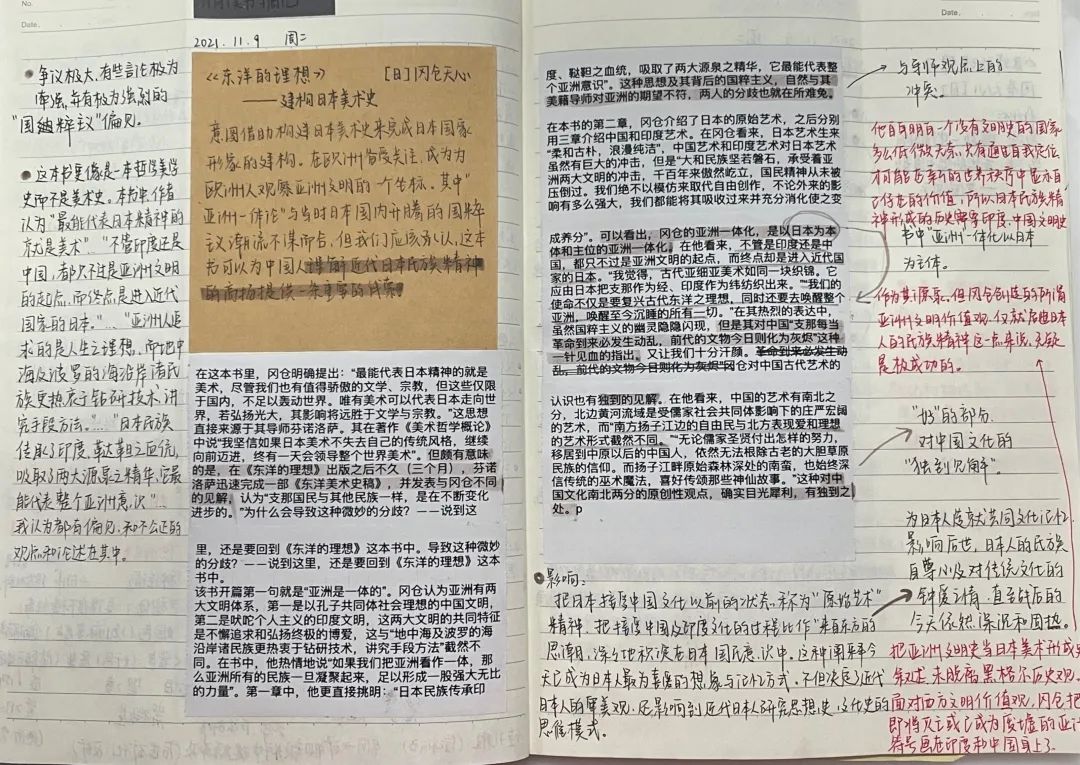 No.
Date.
2021.11.9 周二
• 争议极大,有些言论极为
牵强,并有极为强烈的
"国粹主义"偏见。
• 这本书更像是一本哲学美学
史而不是美术史。本书中,作者
认为"最能代表日本精神的
就是美术""不管印度还是
中国,都只不过是亚洲文明
的起点,而终点是进入近代
国家的日本。"…"亚洲人追
求的是人生之理想,而地中
海及波罗的海沿岸诸民
族更热衷于钻研技术,讲
究手段方法。"…"日本民族
传承了印度、鞑靼之血统,
吸取了两大源泉之精华,它最
能代表整个亚洲意识"…
我认为都有偏见和不公正的
观点和论述在其中。
《东洋的理想》 [日]冈仓天心
——建构日本美术史
意图借助构建日本美术史来完成日本国家
形象的建构。在欧洲备受关注,成为为
欧洲人观察亚洲文明的一个坐标。其中"
亚洲一体论"与当时日本国内开腾的国粹
主义潮流不谋而合,但我们应该承认,这本
书可以为中国人理解近代日本民族精神
的高扬提供一条重要的线索。
在这本书里,冈仓明确提出:"最能代表日本精神的就是
美术,尽管我们也有值得骄傲的文学、宗教,但这些仅限
于国内,不足以轰动世界。唯有美术可以代表日本走向世
界,若弘扬光大,其影响将远胜于文学与宗教。"这思想
直接来源于其导师芬诺洛萨。其在著作《美术哲学概论》
中说"我坚信如果日本美术不失去自己的传统风格,继续
向前迈进,终有一天会领导整个世界美术"。但颇有意味
的是,在《东洋的理想》出版之后不久(三个月),芬诺
洛萨迅速完成一部《东洋美术史稿》,并发表与冈仓不同
的见解,认为"支那国民与其他民族一样,是在不断变化
进步的。"为什么会导致这种微妙的分歧?——说到这
里,还是要回到《东洋的理想》这本书中。导致这种微妙
的分歧?——说到这里,还是要回到《东洋的理想》这本
书中。
该书开篇第一句就是"亚洲是一体的"。冈仓认为亚洲有两
大文明体系,第一是以孔子共同体社会理想的中国文明,
第二是吠陀个人主义的印度文明,这两大文明的共同特征
是不懈追求和弘扬终极的博爱,这与"地中海及波罗的海
沿岸诸民族更热衷于钻研技术,讲究手段方法"截然不
同。在书中,他热情地说"如果我们把亚洲看作一体,那
么亚洲所有的民族一旦凝聚起来,足以形成一股强大无比
的力量"。第一章中,他更直接挑明:"日本民族传承印
Date.
度、鞑靼之血统,吸取了两大源泉之精华,它最能代表整
个亚洲意识"。这种思想及其背后的国粹主义,自然与其
美籍导师对亚洲的期望不符,两人的分歧也就在所难免。
与导师观点上的
冲突。
在本书的第二章,冈仓介绍了日本的原始艺术,之后分别
用三章介绍中国和印度艺术。在冈仓看来,日本艺术生来
"柔和古朴,浪漫纯洁",中国艺术和印度艺术对日本艺术
虽然有巨大的冲击,但是"大和民族坚若磐石,承受着亚
洲两大文明的冲击,千百年来傲然屹立,国民精神从未被
压倒过。我们绝不以模仿来取代自由创作,不论外来的影
响有多么强大,我们都能将其吸收过来并充分消化使之变
成养分"。可以看出,冈仓的亚洲一体化,是以日本为本
体和主位的亚洲一体化。在他看来,不管是印度还是中
国,都只不过是亚洲文明的起点,而终点却是进入近代国
家的日本。"我觉得,古代亚细亚美术如同一块织锦。它
应由日本把支那作为经、印度作为纬纺织出来。""我们的
使命不仅是要复兴古代东洋之理想,同时还要去唤醒整个
亚洲,唤醒至今沉睡的所有一切。"在其热烈的表达中,
虽然国粹主义的幽灵隐隐闪现,但是其对中国"支那每当
革命到来必发生动乱,前代的文物今日则化为灰烬"这种
一针见血的指出。又让我们十分汗颜。革命到来必发生动
乱,前代的文物今日则化为灰烬"冈仓对中国古代艺术的
认识也有独到的见解。在他看来,中国的艺术有南北之
分,北边黄河流域是受儒家社会共同体影响下的庄严宏阔
的艺术,而"南方扬子江边的自由民与北方表现爱和理想
的艺术形式截然不同。""无论儒家圣贤付出怎样的努力,
移居到中原以后的中国人,依然无法根除古老的大胆草原
民族的信仰。而扬子江畔原始森林深处的南蛮,也始终深
信传统的巫术魔法,喜好传颂那些神仙故事。"这种对中
国文化南北两分的原创性观点,确实目光犀利,有独到之
处。p
他自明白一个没有文明史的国家
多么低微大众,只有通过自我定位
才可能在新的世界秩序中显示自
己存在的价值,所以日本民族精
神形成的历史需要印度、中国文明史
书中"亚洲一体化以日本
为主体。
作为其源泉。但冈仓创造的所谓
亚洲文明价值观,仅就启迪日本
人的民族精神这一点来说,无疑
是极成功的。
"好"的部分.
对中国文化的
"独到见解"
为日本人成就共同文化记忆
影响后世,日本人的民族
自尊心以及对传统文化的
钟爱之情,直至战后的
今天依然深沉和固执。
• 影响:
把日本接受中国文化以前的状态,称为"原始艺术"
精神,把接受中国及印度文化的过程比作"来自东方的
思潮,深深地积淀在日本国民意识中。这种阐释今
天已成为日本人最为喜爱的想象与记忆方式,不但决定了近代
日本人的审美观,还影响到近代日本人研究思想史、文化史的
思维模式。
把亚洲文明史当日本美术形成史
叙述,未脱离黑格尔历史观。
面对西方文明价值观,冈仓把
即将灭亡或已成为废墟的亚洲
符号画在印度和中国身上了。